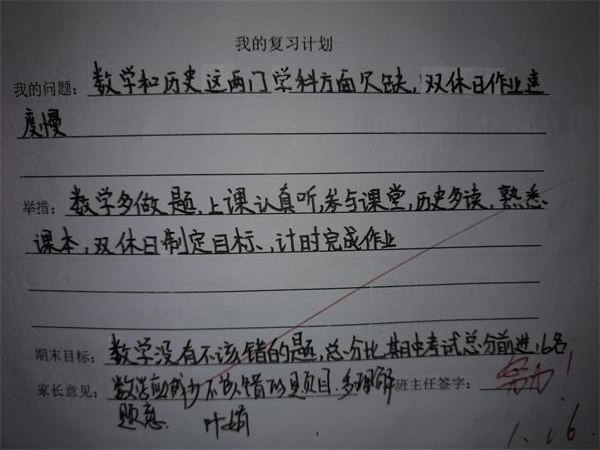 我的复习计划
我的问题：数学和历史这两门学科方面欠缺，双休日作业速
度慢
举措：数学多做题，上课认真听，参与课堂，历史多读，熟悉
课本，双休日制定目标，计时完成作业
期末目标：数学没有不该错的题，总分比期中考试总分前进16名
家长意见：数学应减少不该错的题目，多理解 班主任签字：
题意
1.16